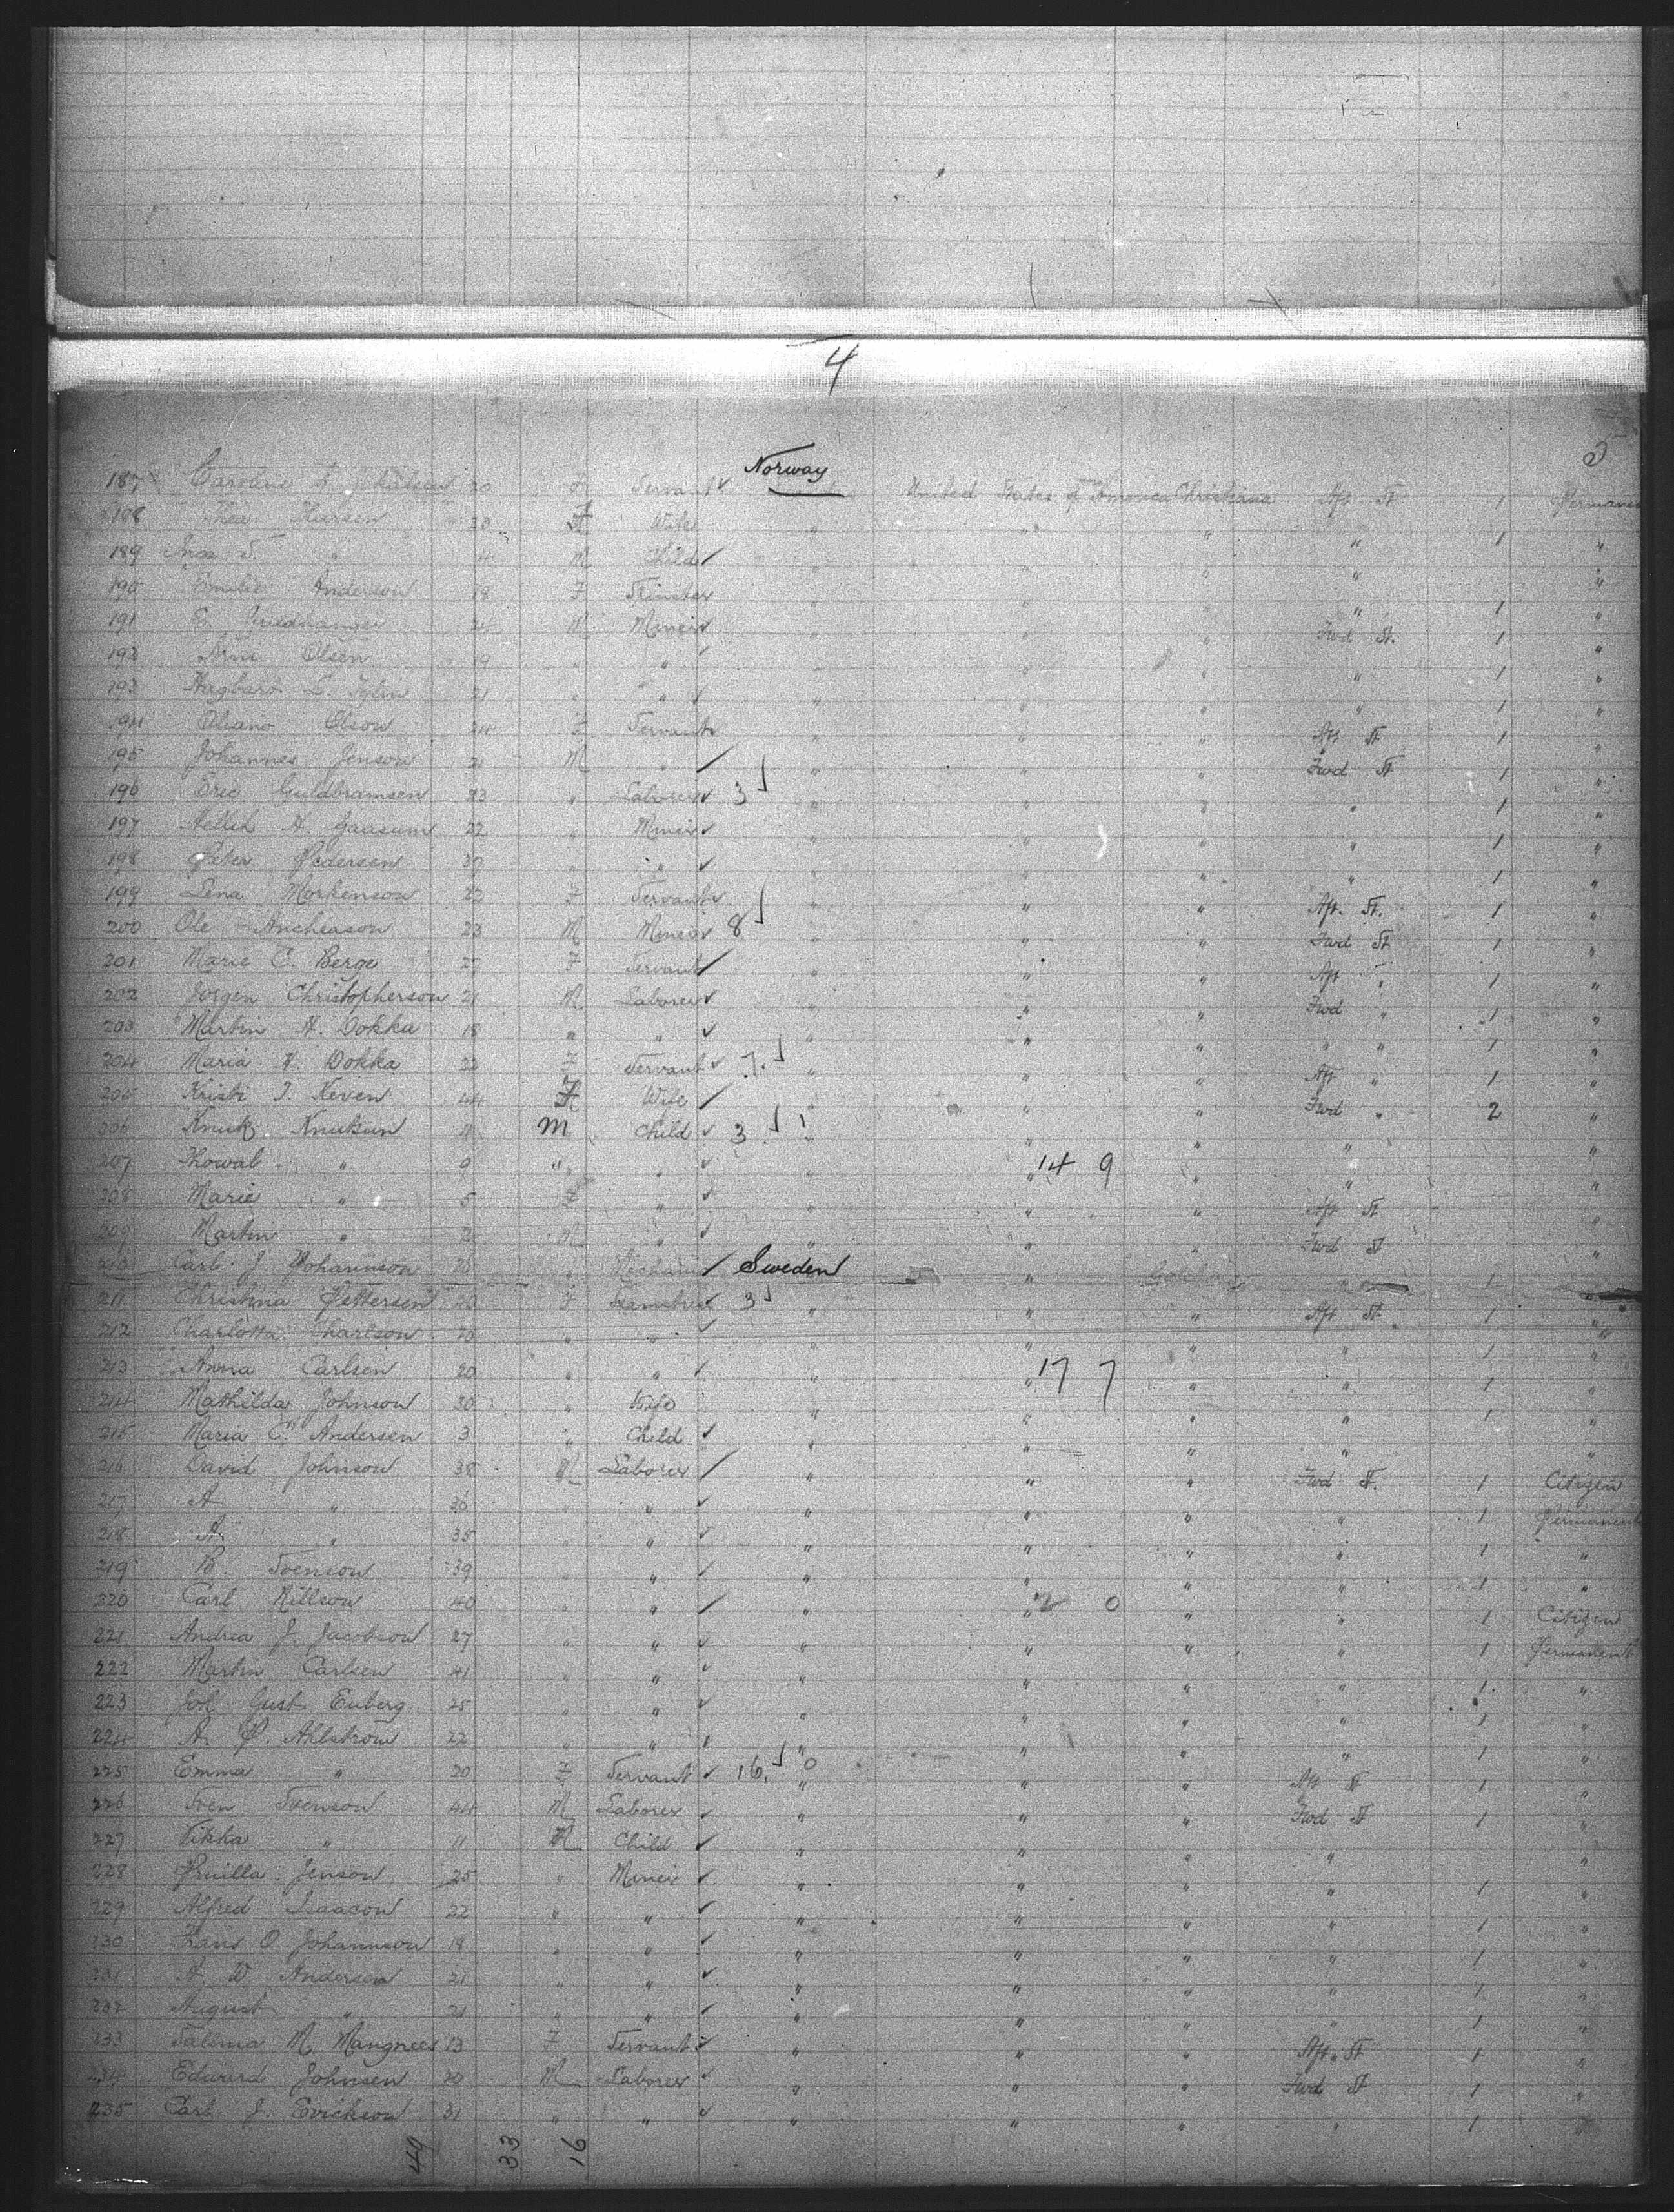 4
5
Norway
187 Caroline A. 20 F Servant United States of America Christiana Aft St 1 Permanent
188 Thea Karsen 23 F Wife " " " " 1 "
189 " 4 M Child " " " " "
190 Emelie Anderson 18 F Spinster " " " " 1 "
191 E. 24 M Miner " " " Fwd St. 1 "
192 Arne Olsen 19 " " " " " " 1 "
193 Hagbart L. 21 " " " " " " 1 "
194 Oliano Olson 24 F Servant " " " Aft St 1 "
195 Johannes Jenson 21 M " " " " Fwd St 1 "
196 Eric Guldbramsen 23 " Laborer 3 " " " " 1 "
197 H. Gaasum 22 " Miner " " " " 1 "
198 Peter Pedersen 37 " " " " " " 1 "
199 Lena Morkenson 22 F Servant " " " Aft. St. 1 "
200 Ole Ancheason 23 M Miner 8 " " " Fwd St 1 "
201 Marie C. Berge 27 F Servant " " " Aft " 1 "
202 Jorgen Christopherson 21 M Laborer " " " Fwd " 1 "
203 Martin H. Dokka 18 " " " " " " " 1 "
204 Maria H. Dokka 22 F Servant 7. " " " Aft " 1 "
205 Kristi J. Keven 44 F Wife " " " Fwd " 2 "
206 Knut Knutsen 11 M Child 3 " " " " "
207 " 9 " " " " 14 9 " " "
208 Marie " 5 F " " " " Aft St "
209 Martin " 2 M " " " " Fwd St "
210 Carl J. Johannson 26 " Mechanic Sweden " " 1
211 Christina Pettersen 20 F 3 " " " Aft St 1 "
212 Charlotta Charlson 20 " " " " " " 1 "
213 Anna Carlsen 20 " " " " 17 7 " " 1 "
214 Mathilda Johnson 30 " Wife " " " " 1 "
215 Maria C. Andersen 3 " Child " " " " "
216 David Johnson 38 M Laborer " " " Fwd St. 1 Citizen
217 A " 36 " " " " " " 1 Permanent
218 A. " 35 " " " " " " 1 "
219 B. Svenson 39 " " " " " " 1 "
220 Carl Nillson 40 " " " " 2 0 " " 1 Citizen
221 Andrea J. Jacobson 27 " " " " " " 1 Permanent
222 Martin Carlsen 41 " " " " " " 1 "
223 Joh Gust. Enberg 25 " " " " " " 1 "
224 A. P. Ahlstrom 22 " " " " " " 1 "
225 Emma " 20 F Servant 16. 0 " " " Aft St 1 "
226 Sven Svenson 44 M Laborer " " " Fwd St 1 "
227 " 11 M Child " " " " "
228 Jenson 25 " Miner " " " " 1 "
229 Alfred Isaacon 22 " " " " " " 1 "
230 O. Johannson 18 " " " " " " 1 "
231 A W Andersen 21 " " " " " " 1 "
232 August " 21 " " " " " " 1 "
233 M. 13 F Servant " " " Aft. St 1 "
234 Edward Johnsen 20 M Laborer " " " Fwd St 1 "
235 Carl J. Erickson 31 " " " " " " 1 "
49 33 16